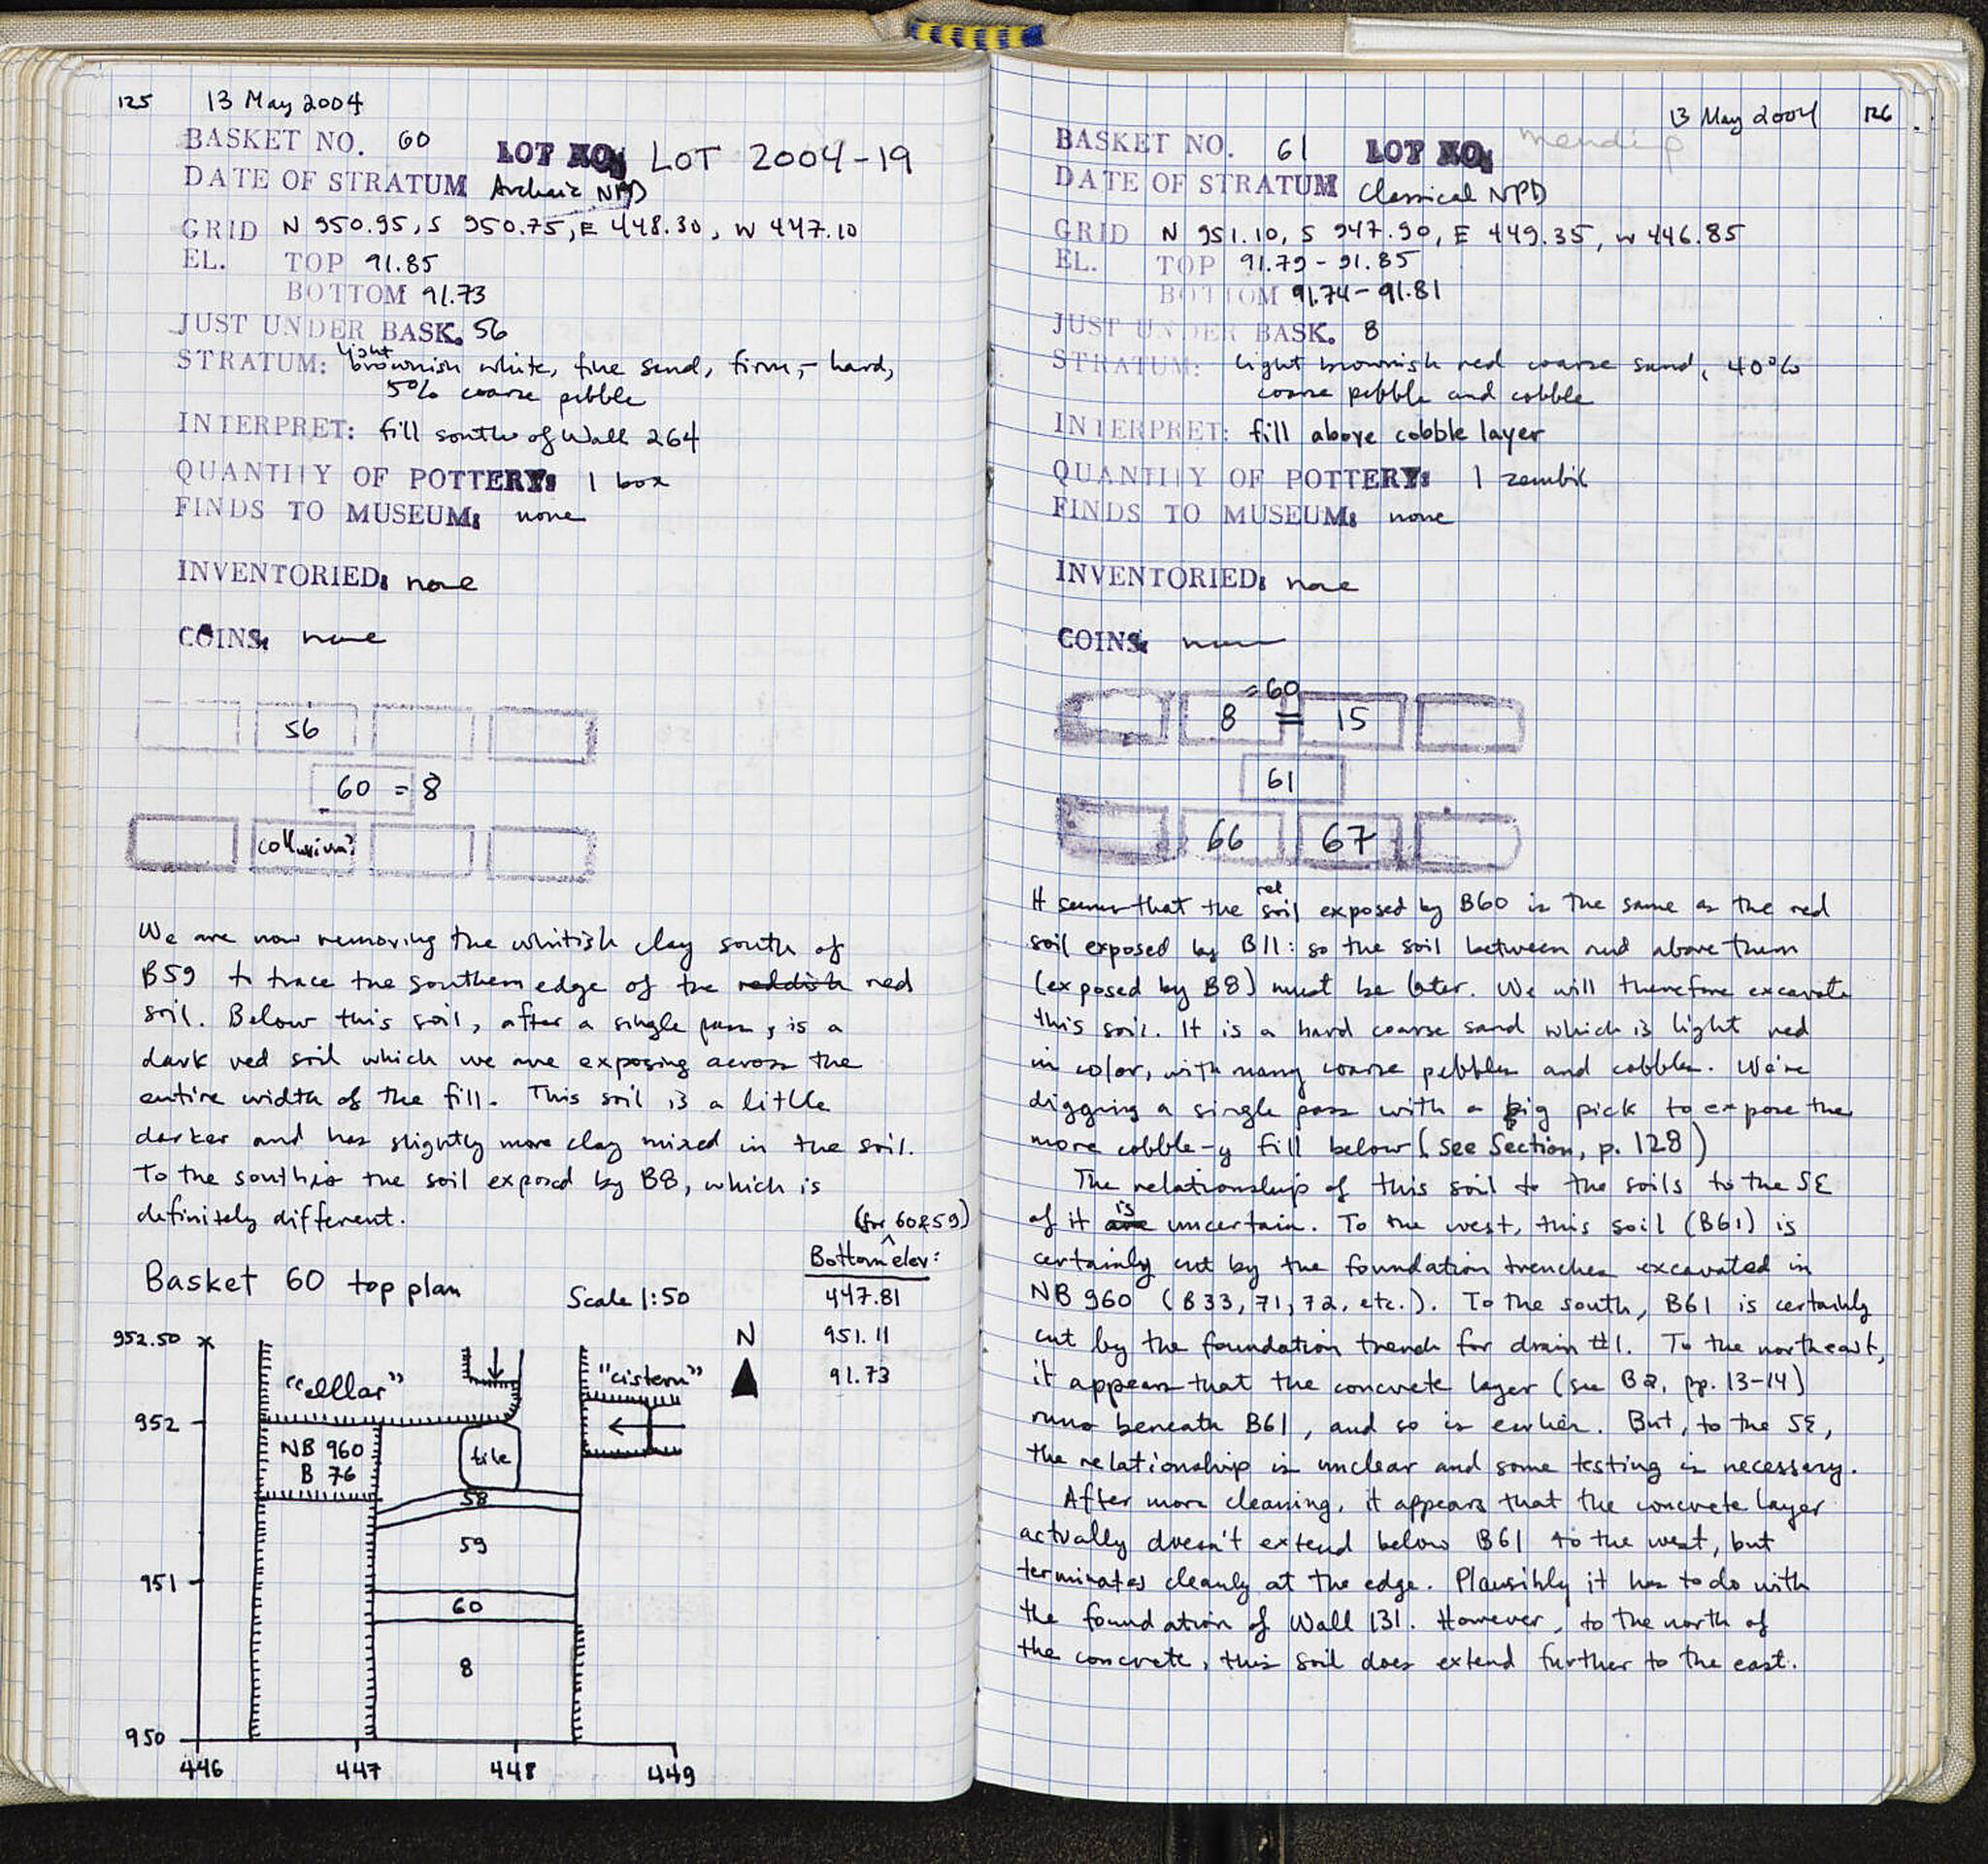 125 13 May 2004
BASKET NO. 60 LOT NO. LOT 2004-19
DATE OF STRATUM Archaic NPD
GRID N 950.95, S 950.75, E 448.30, W 447.10
EL. TOP 91.85
BOTTOM 91.73
JUST UNDER BASK. 56
STRATUM: light brownish white, fine sand, firm - hard,
5% coarse pebble
INTERPRET: fill south of Wall 264
QUANTITY OF POTTERY: 1 box
FINDS TO MUSEUM: none
INVENTORIED: none
COINS: none
56
60 = 8
colluvium?
We are now removing the whitish clay south of
B59 to trace the southern edge of the reddish red
soil. Below this soil, after a single pass, is a
dark red soil which we are exposing across the
entire width of the fill. This soil is a little
darker and has slightly more clay mixed in the soil.
To the south is the soil exposed by B8, which is
definitely different.
(for 60&59)
Bottom elev:
447.81
951.11
91.73
Basket 60 top plan Scale 1:50
N
952.50
952
951
950
446 447 448 449
"cellar"
"cistern"
NB 960
B 76
tile
58
59
60
8
13 May 2004 126
BASKET NO. 61 LOT NO.
DATE OF STRATUM Classical NPD
GRID N 951.10, S 947.90, E 449.35, W 446.85
EL. TOP 91.79 - 91.85
BOTTOM 91.74 - 91.81
JUST UNDER BASK. 8
STRATUM: light brownish red coarse sand, 40%
coarse pebble and cobble
INTERPRET: fill above cobble layer
QUANTITY OF POTTERY: 1 zembil
FINDS TO MUSEUM: none
INVENTORIED: none
COINS: none
=60
8 = 15
61
66 67
It seems that the red soil exposed by B60 is the same as the red
soil exposed by B11: so the soil between and above them
(exposed by B8) must be later. We will therefore excavate
this soil. It is a hard coarse sand which is light red
in color, with many coarse pebbles and cobbles. We're
digging a single pass with a big pick to expose the
more cobble-y fill below (see Section, p. 128)
The relationship of this soil to the soils to the SE
of it are is uncertain. To the west, this soil (B61) is
certainly cut by the foundation trenches excavated in
NB 960 (B33, 71, 72, etc.). To the south, B61 is certainly
cut by the foundation trench for drain #1. To the northeast,
it appears that the concrete layer (see B2, pp. 13-14)
runs beneath B61, and so is earlier. But, to the SE,
the relationship is unclear and some testing is necessary.
After more cleaning, it appears that the concrete layer
actually doesn't extend below B61 to the west, but
terminates cleanly at the edge. Plausibly it has to do with
the foundation of Wall 131. However, to the north of
the concrete, this soil does extend further to the east.